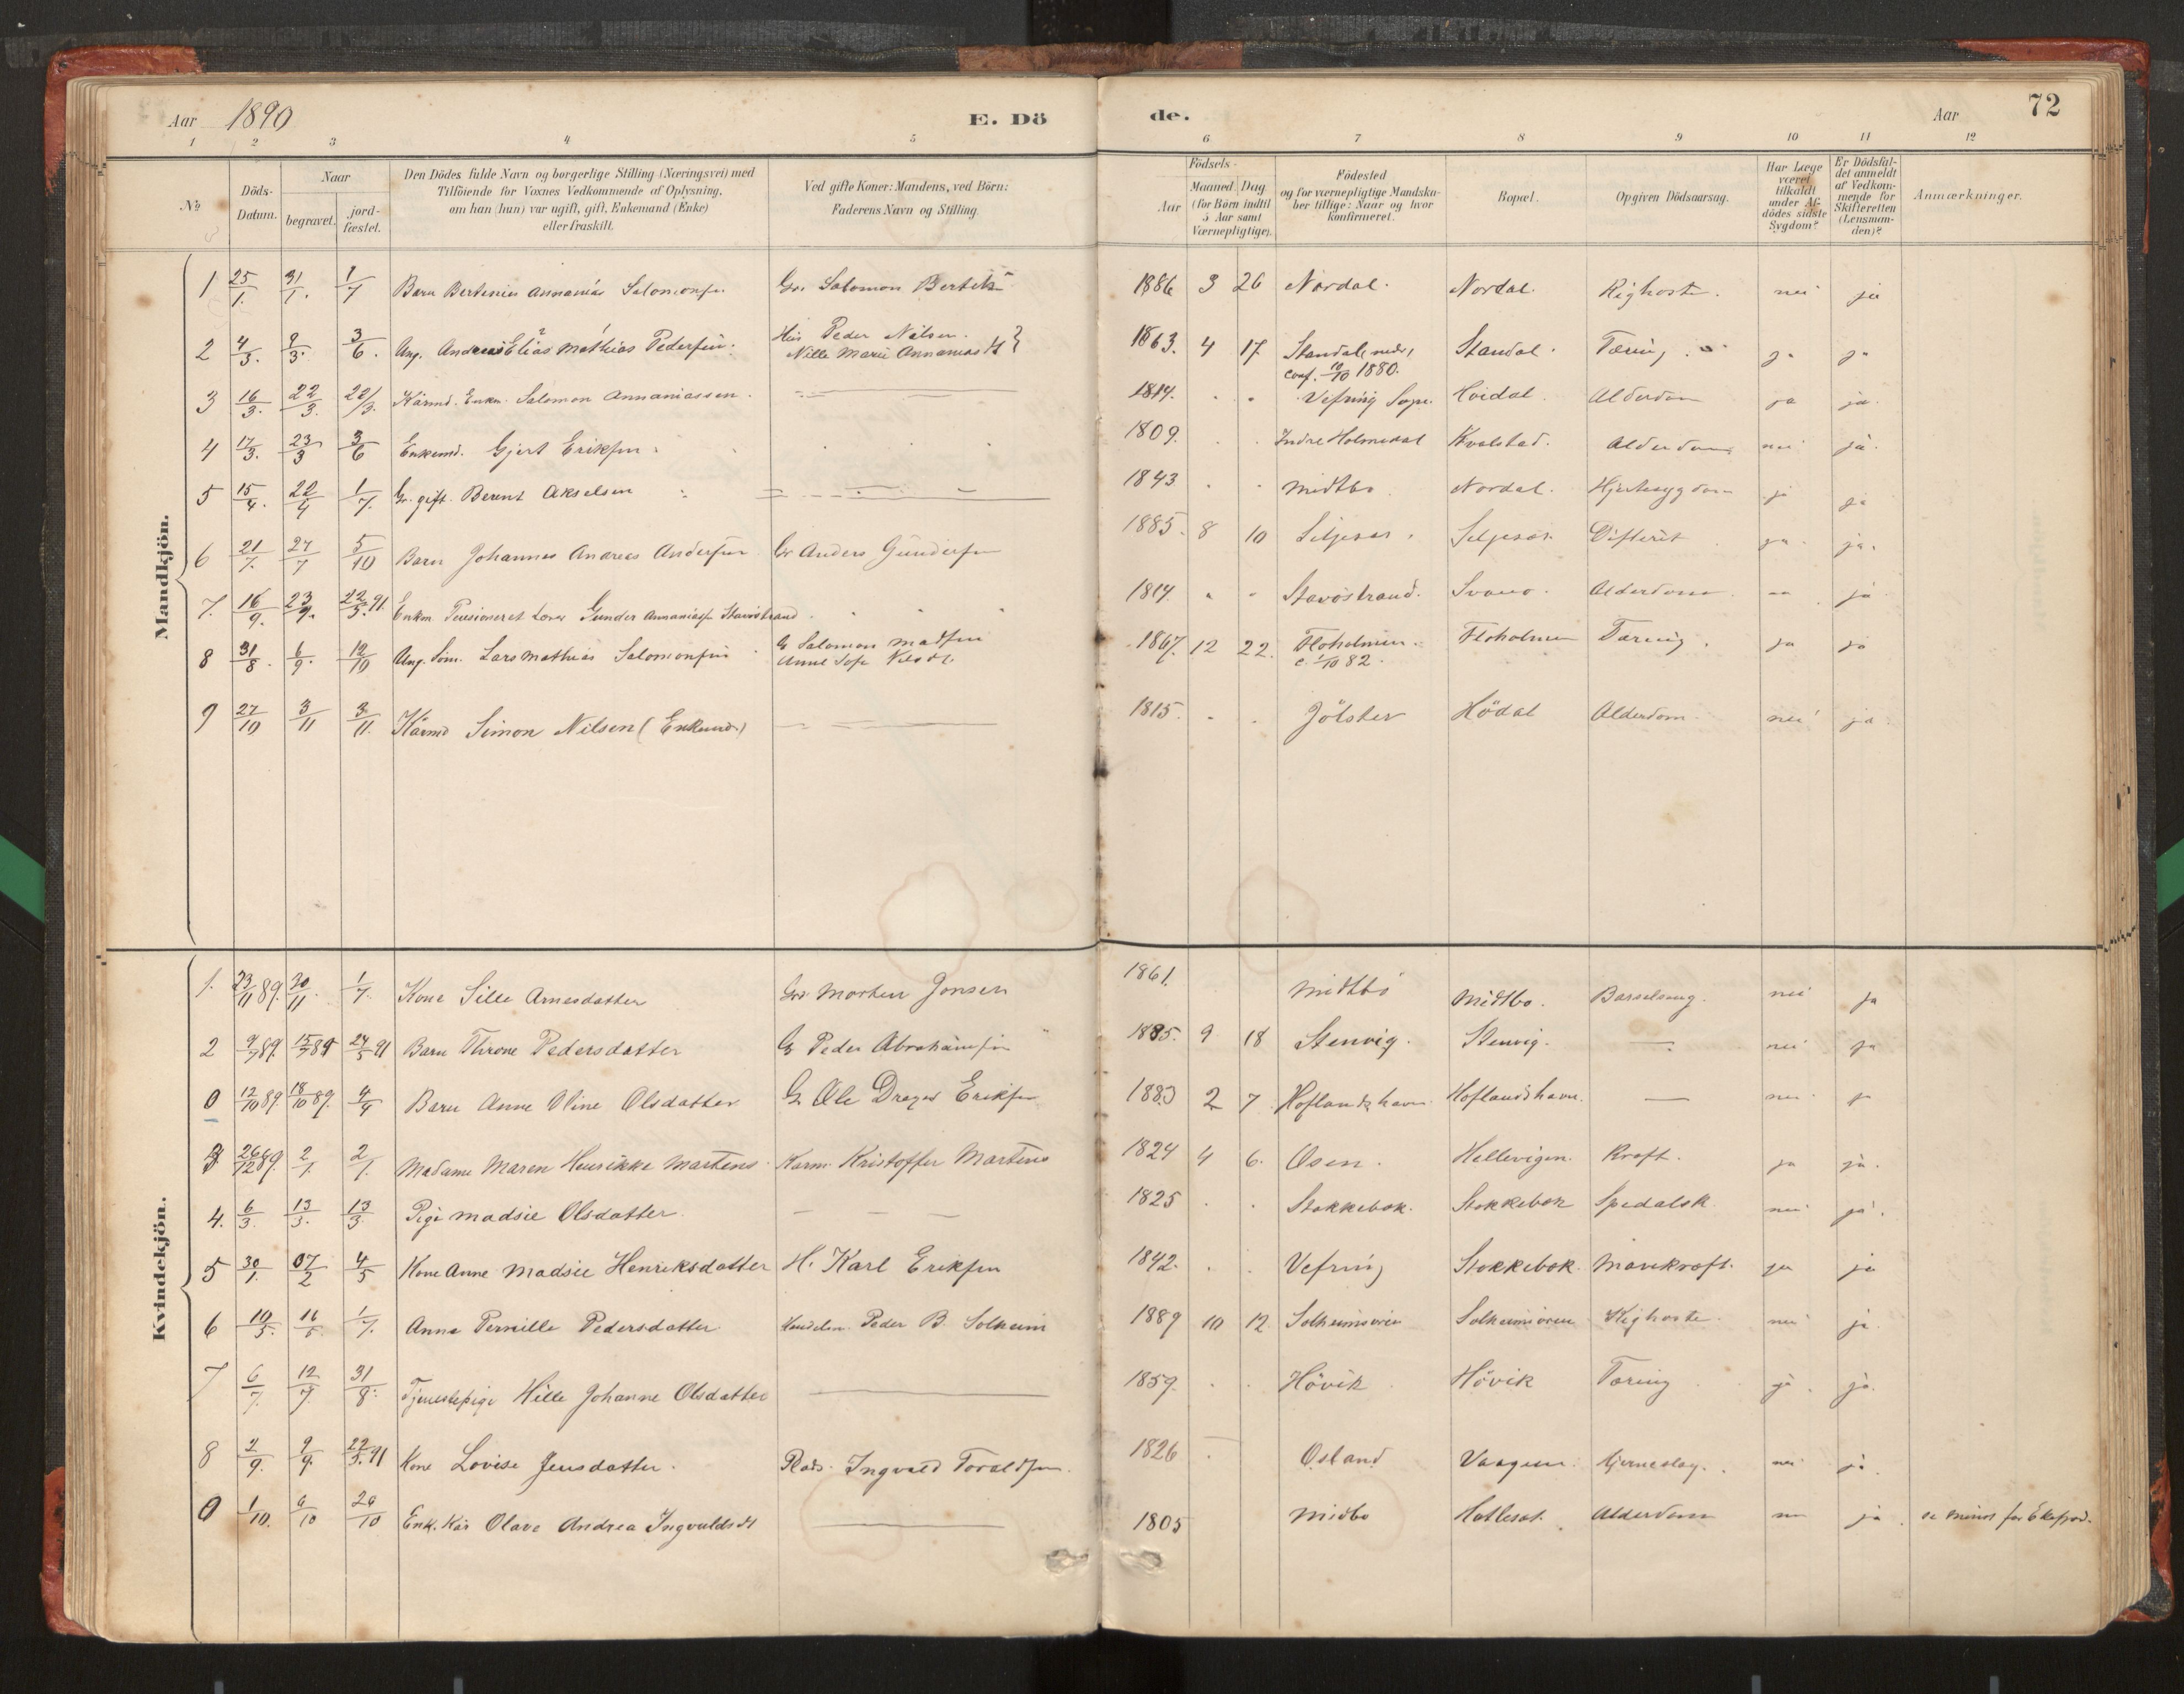 Aar 1890
E. Dö
de.
Aar
72
1 2 3 4 5 6 7 8 9 10 11 12
No
Döds-Datum.
Naar
begravet.
jord-fæstet.
Den Dödes fulde Navn og borgerlige Stilling (Næringsvei) med
Tilföiende for Voxnes Vedkommende af Oplysning,
om han (hun) var ugift, gift, Enkemand (Enke)
eller fraskilt.
Ved gifte Koner: Mandens, ved Börn:
Faderens Navn og Stilling.
Födsels-
Aar
Maaned. Dag.
(for Börn indtil
5 Aar samt
Værnepligtige).
Födested
og for værnepligtige Mandska-
ber tillige: Naar og hvor
konfirmeret.
Bopæl.
Opgiven Dödsaarsag.
Har Læge
været
tilkaldt
under Af-
dödes sidste
Sygdom?
Er Dödsfal-
det anmeldt
af Vedkom-
mende for
Skifteretten
(Lensman-
den)?
Anmærkninger.
Mandkjön.
1 25/1. 31/1. 1/7 Barn Bertinius Annanias Salomonsen Gr. Salomon Berteln 1886 3 26 Nordal. Nordal. Kighoste. nei ja
2 4/3. 9/3. 3/6. Ung. Andreas Elias Mathias Pedersen. Hus Peder Nilsen. 1863. 4 17 Standal, nedr, Standal. Tæring. ja ja
Nille Marie Annanias
conf. 10/10 1880.
3 16/3. 22/3. 22/3. Kårmd. Enkm. Salomon Annaniassen. 1814. Vefring Hvidal. Alderdom ja ja.
4 17/3. 23/3 3/6 Enkemd. Gjert Eriksen. 1809. Indre Holmedal Kvalstad. Alderdom nei ja.
5 15/4. 22/4 1/7. Gr. gift. Berent Akselsen 1843 Midtbö Nordal. Hjertesygdom ja ja
6 21/7. 27/7 5/10 Barn Johannes Andreas Andersen Gr Anders Gundersen 1885. 8 10 Seljesæt. Seljesæt. Difterit ja. ja.
7. 16/9. 23/9. 22/5.91. Enkm Pensioneret Lærer Gunder Annaniassen Stavöstrand 1814. Stavöstrand. Svanö. Alderdom ja
8 31/8. 6/9. 12/10 Ung. Söm. Lars Mathias Salomonsen G Salomon Madsen 1867. 12 22. Floholmen. Floholmen Tæring. ja ja
Anne Sofe
c. 1/10 82.
9 27/10 3/11 3/11. Kårmd Simon Nilsen (Enkemd.) 1815. Jölster Hödal Alderdom. nei ja.
Kvindekjön.
1. 23/11 89. 30/11. 1/7. Kone Sille Arnesdatter Gr. Morten Jonsen 1861. Midtbö Midtbö. Barselseng. nei ja
2 9/7 89. 15/7 89 24/5 91 Barn Throne Pedersdatter G Peder Abrahamsen 1885. 9 18 Stenvig. Stenvig. nei ja
0 12/10 89. 18/10 89. 4/4 Barn Anne Oline Olsdatter G. Ole Drages Eriksen 1883 2 7 Hoflandshavn. Hoflandshavn. nei. ja
3 26/12 89. 2/1. 2/1. Madame Maren Henrikke Martens. Karm. Kristoffer Martens 1824 4 6. Osen. Hellevigen. Kræft. ja ja.
4. 6/3. 13/3. 13/3 Pige Madsie Olsdatter. 1825 Stokkebæk. Stokkebæk Spedalsk nei ja.
5 30/1. 07/2 4/5 Kone Anne Madsie Henriksdatter H. Karl Eriksen 1842. Vefring Stokkebæk. Mavekræft. ja ja
6 10/5. 16/5. 1/7. Anna Pernille Pedersdatter Handelsm. Peder B. Solheim 1889 10 12 Solheimsören Solheimsören Kighoste. nei ja
7 6/7. 12/7. 31/8. Tjenestepige Hille Johanne Olsdatter 1859. Hövik Hövik Tæring ja. ja.
8 2/9. 9/9. 22/5.91 Kone Lovise Jensdatter. Plads. Ingvald Toraldsen. 1826 Osland Vaagene. nei ja.
0 1/10. 6/10 20/10 Enk. Kår Olave Andrea Ingvaldsdt 1805 Midtbö Hatleset. Alderdom ja